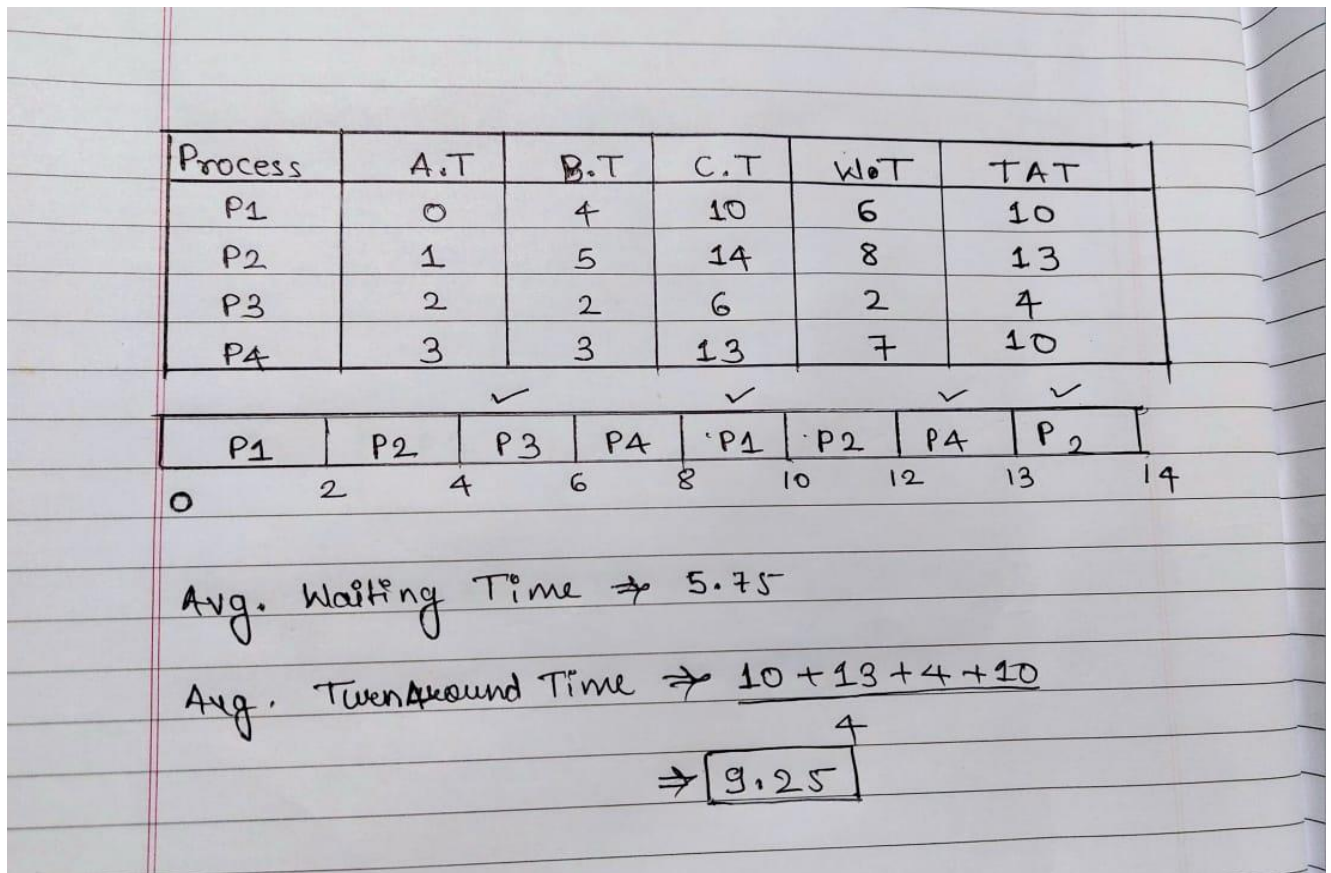 Process A.T B.T C.T W.T TAT
P1 0 4 10 6 10
P2 1 5 14 8 13
P3 2 2 6 2 4
P4 3 3 13 7 10
P1 P2 P3 P4 P1 P2 P4 P2
0 2 4 6 8 10 12 13 14
Avg. Waiting Time ⇒ 5.75
Avg. TurnAround Time ⇒ 10+13+4+10
4
⇒ 9.25